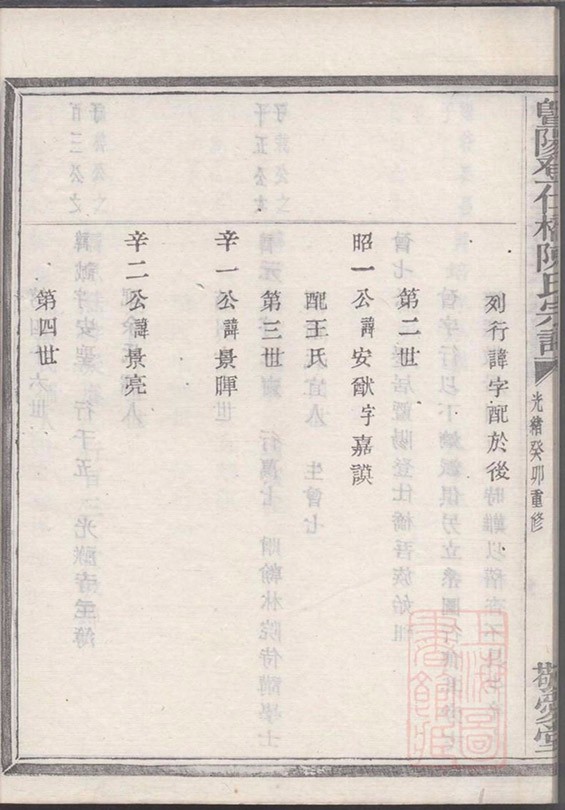 暨陽登仕橋陳氏宗譜
光緒癸卯重修
敬愛堂
列行諱字配於後
第二世
昭一公諱安猷字嘉謨
配王氏
第三世
辛一公諱景暉
辛二公諱景亮
第四世